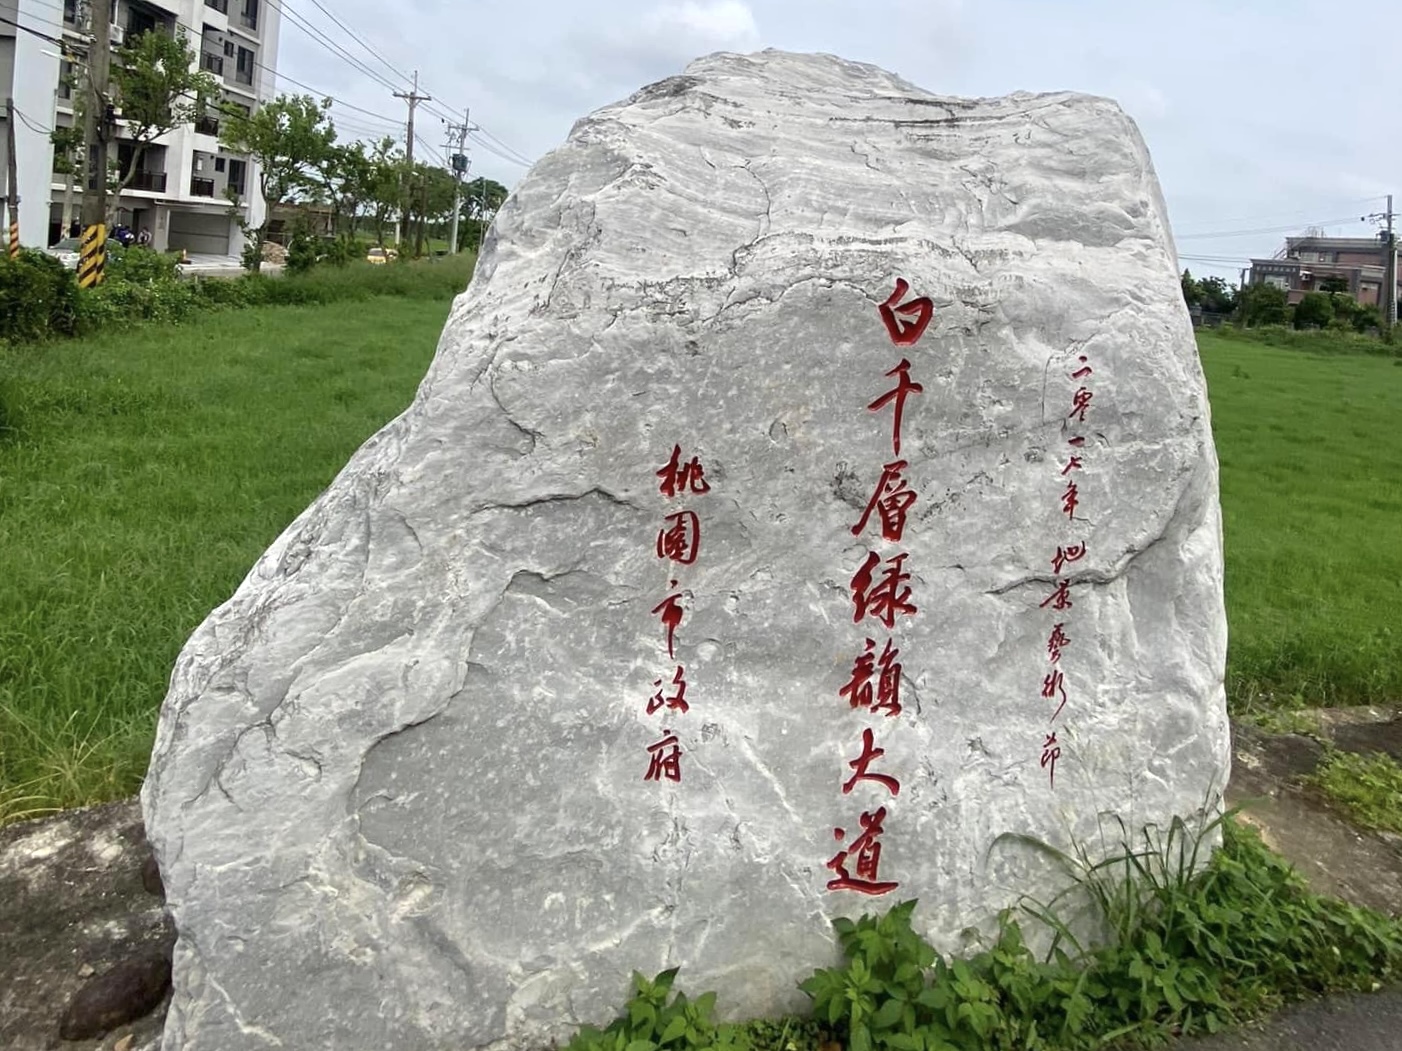 二零一七年 地景藝術節
白千層綠韻大道
桃園市政府